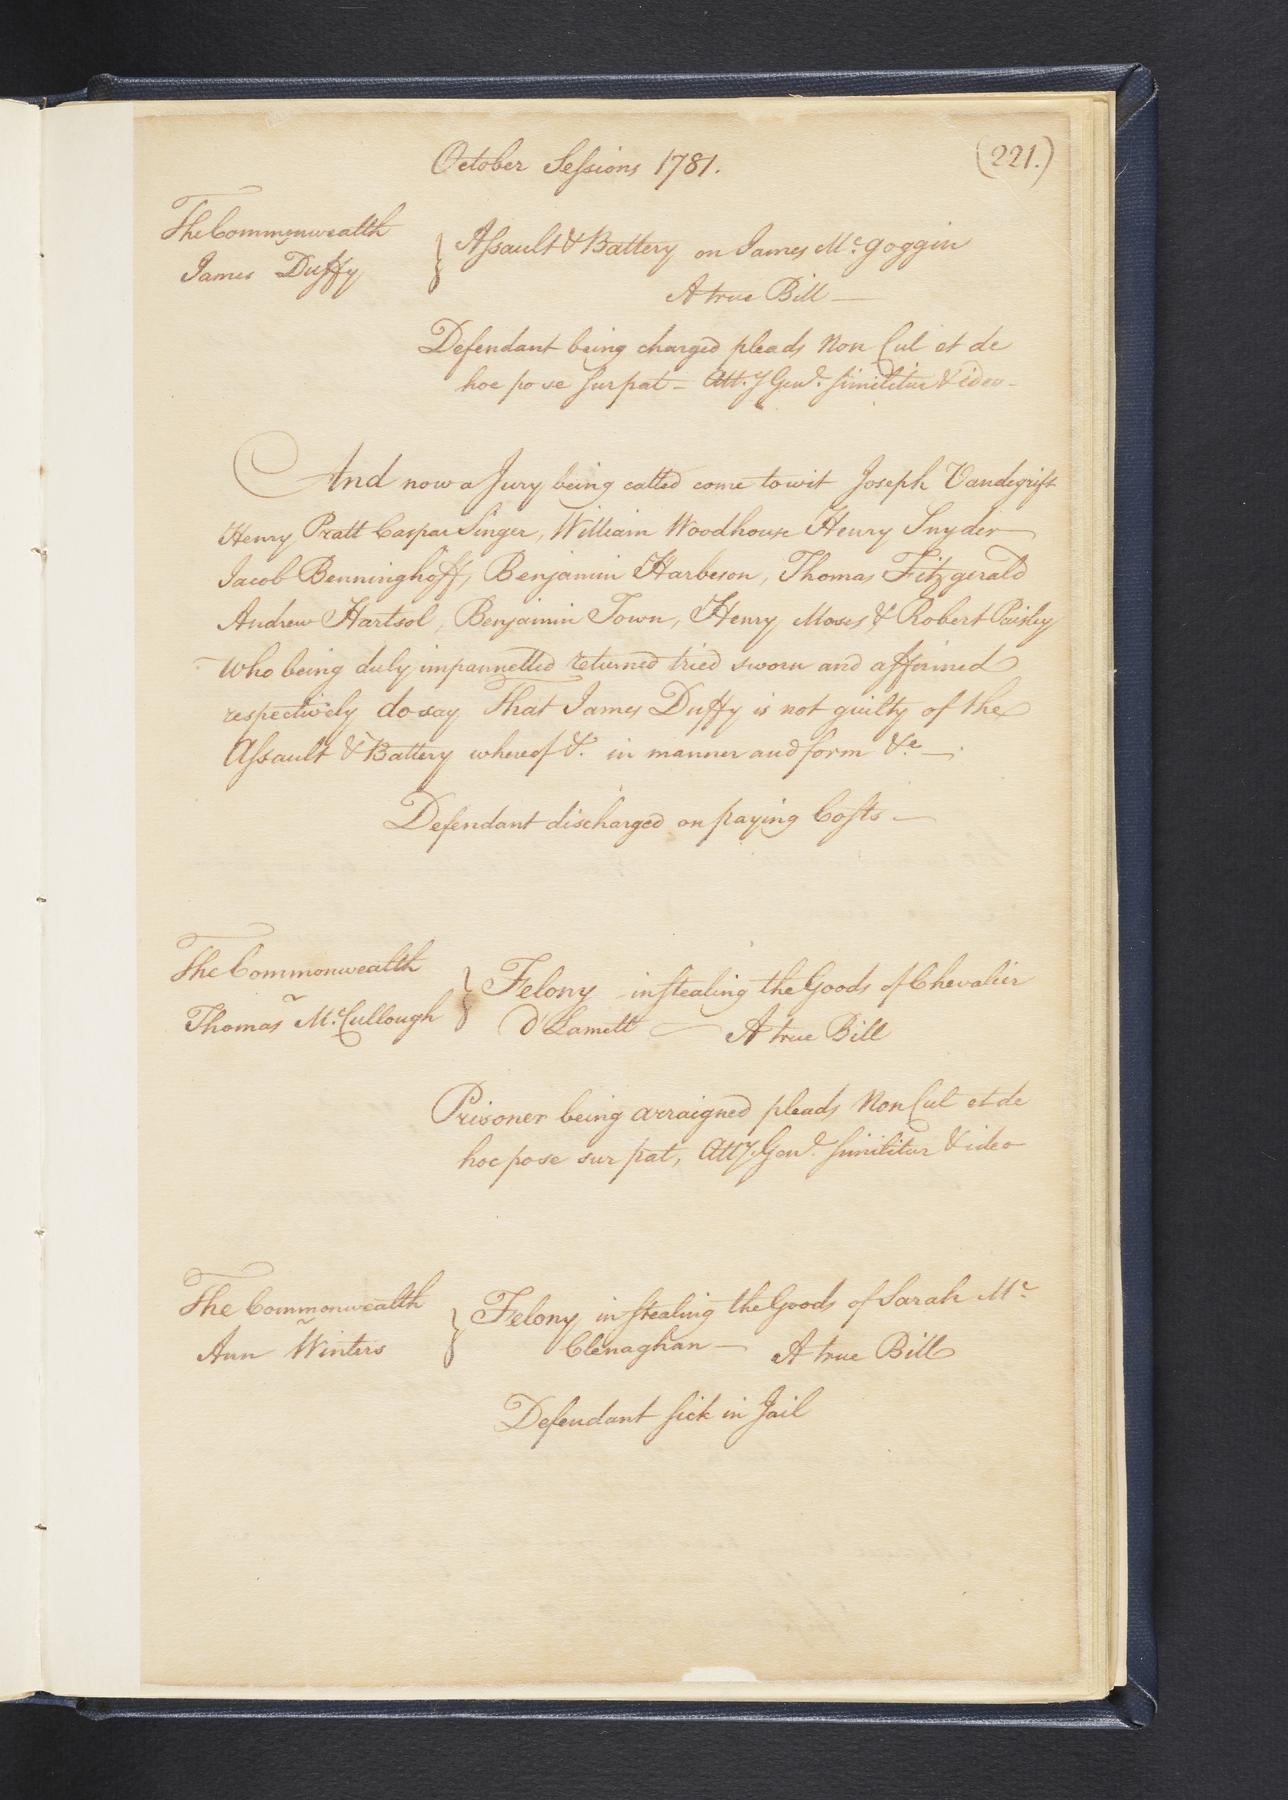 October Sessions 1781.
(221.)
The Commonwealth
James Duffy
Assault & Battery on James Mc. Goggin
A true Bill —
Defendant being charged pleads Non Cul et de
hoc po se sur pat – Att.y Genl. similitur & ideo –
And now a Jury being called come to wit Joseph Vandegrift
Henry Pratt Caspar Singer, William Woodhouse Henry Snyder
Jacob Benninghoff, Benjamin Harbeson, Thomas Fitzgerald
Andrew Hartsol, Benjamin Town, Henry Moses & Robert Paisley
Who being duly impannelled returned tried sworn and affirmed
respectively do say That James Duffy is not guilty of the
Assault & Battery whereof &. in manner and form &c. —
Defendant discharged on paying Costs —
The Commonwealth
~
Thomas Mc. Cullough
Felony in stealing the Goods of Chevalier
D'Lamett — A true Bill
Prisoner being arraigned pleads Non Cul et de
hoc po se sur pat, Atty. Genl. similitur & ideo
The Commonwealth
~
Ann Winters
Felony in stealing the Goods of Sarah Mc.
Clenaghan — A true Bill
Defendant sick in Jail